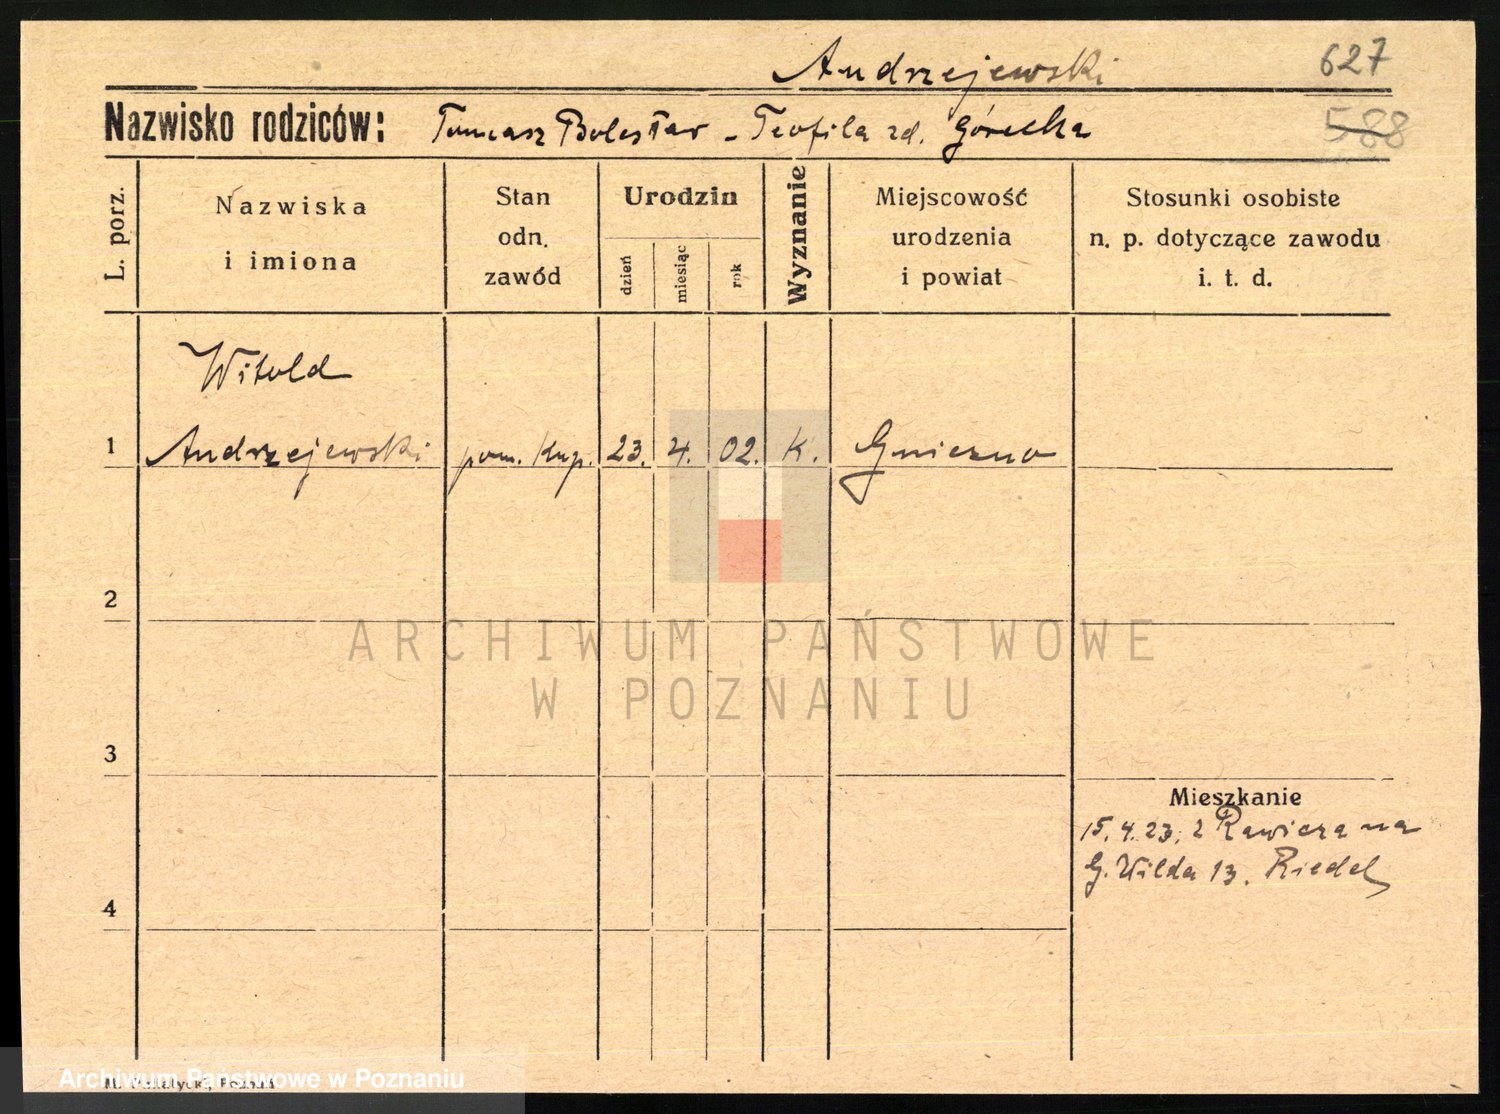 Andrzejewski 627
588
Nazwisko rodziców: Tomasz Bolesław - Teofila zd. Górecka
L. porz.
Nazwiska
i imiona
Stan
odn.
zawód
Urodzin
dzień
miesiąc
rok
Wyznanie
Miejscowość
urodzenia
i powiat
Stosunki osobiste
n. p. dotyczące zawodu
i. t. d.
Witold
1 Andrzejewski pom. Kup. 23. 4. 02. K. Gniezno
2
ARCHIWUM PAŃSTWOWE
W POZNANIU
3
Mieszkanie
15. 4. 23. z Rawicza na
G. Wilda 13. Riedel
4
Archiwum Państwowe w Poznaniu
Poznań